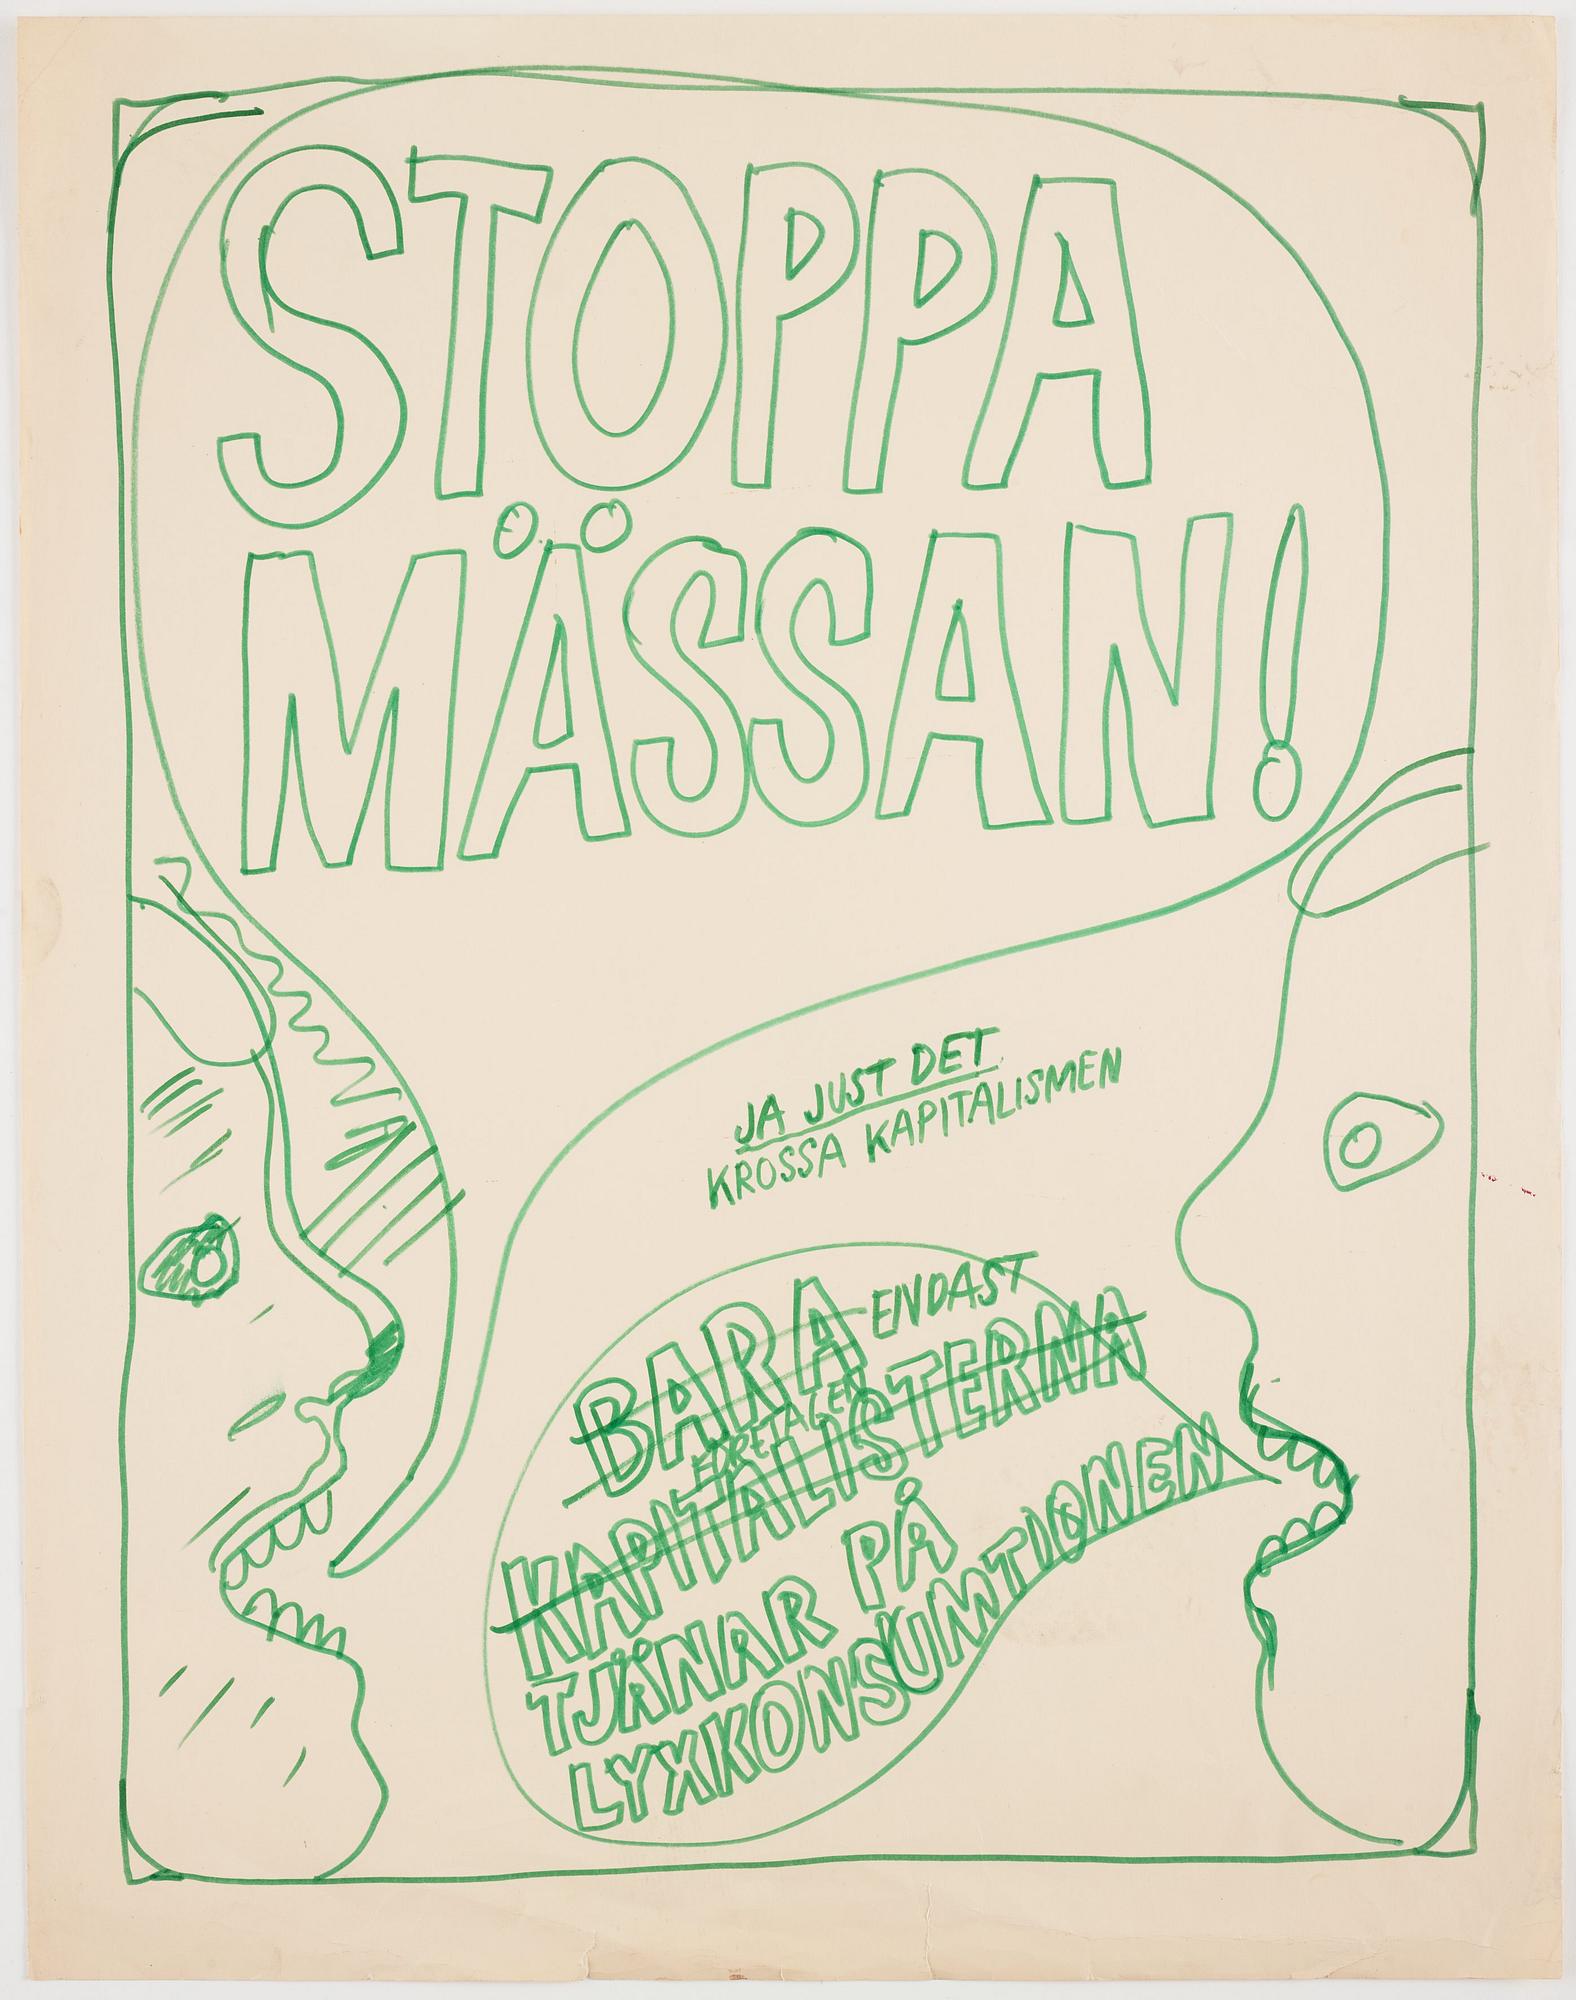 STOPPA
MÄSSAN!
JA JUST DET
KROSSA KAPITALISMEN
BARA ENDAST
FÖRETAGEN
KAPITALISTERNA
TJÄNAR PÅ
LYXKONSUMTIONEN